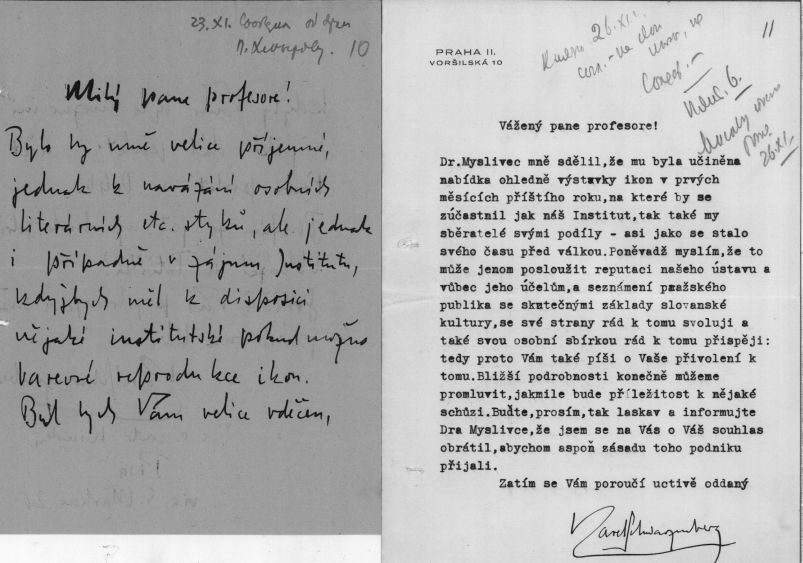 23.XI.
10
Milý pane profesore!
Bylo by mně velice příjemné,
jednak k navázání osobních
literárních etc. styků, ale jednak
i případně v zájmu Institutu,
kdybych měl k disposici
nějaké institutské pokud možno
barevné reprodukce ikon.
Byl bych Vám velice vděčen,
11
26.XI.
PRAHA II.
VORŠILSKÁ 10
26.XI.
Vážený pane profesore!
Dr.Myslivec mně sdělil,že mu byla učiněna
nabídka ohledně výstavky ikon v prvých
měsících příštího roku,na které by se
zúčastnil jak náš Institut,tak také my
sběratelé svými podíly - asi jako se stalo
svého času před válkou.Poněvadž myslím,že to
může jenom posloužit reputaci našeho ústavu a
vůbec jeho účelům,a seznámení pražského
publika se skutečnými základy slovanské
kultury,se své strany rád k tomu svoluji a
také svou osobní sbírkou rád k tomu přispěji:
tedy proto Vám také píši o Vaše přivolení k
tomu.Bližší podrobnosti konečně můžeme
promluvit,jakmile bude příležitost k nějaké
schůzi.Buďte,prosím,tak laskav a informujte
Dra Myslivce,že jsem se na Vás o Váš souhlas
obrátil,abychom aspoň zásadu toho podniku
přijali.
Zatím se Vám poroučí uctivě oddaný
Karel Schwarzenberg